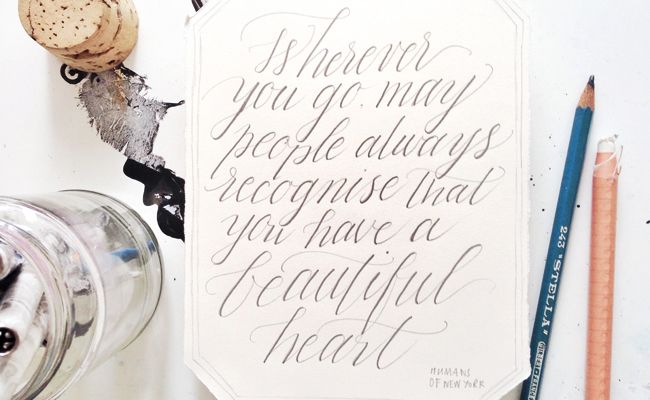 Wherever
you go. may
people always
recognise that
you have a
beautiful
heart
HUMANS
OF NEW YORK
243 "STELLA"